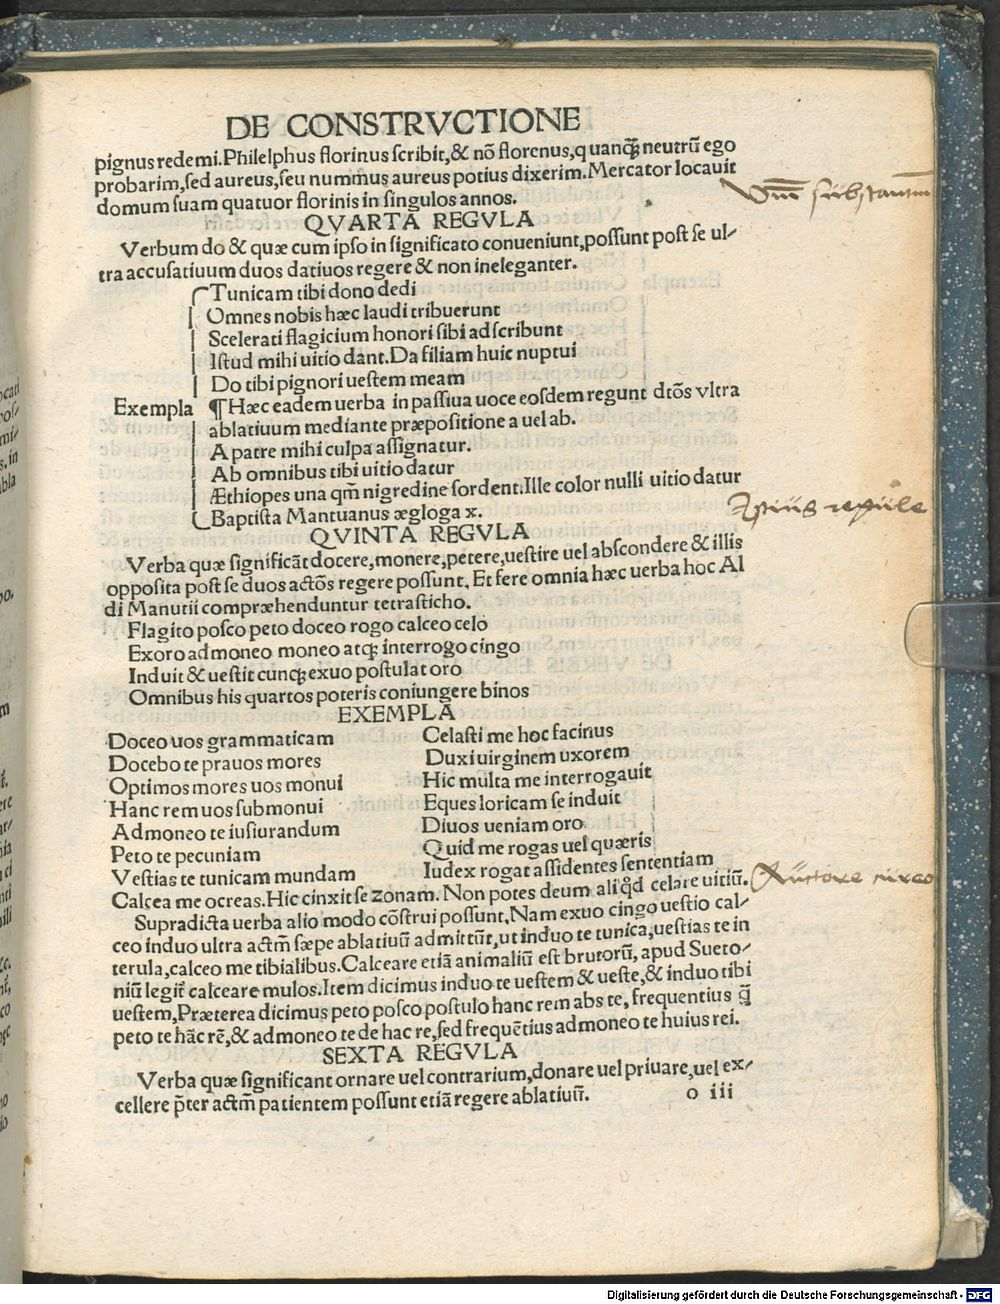 DE CONSTRVCTIONE
pignus redemi. Philelphus florinus scribit, & nõ florenus, quanq̃ neutrũ ego
probarim, sed aureus, seu nummus aureus potius dixerim. Mercator locauit
domum suam quatuor florinis in singulos annos.
QVARTA REGVLA
Verbum do & quæ cum ipso in significato conueniunt, possunt post se ul/
tra accusatiuum duos datiuos regere & non ineleganter.
Tunicam tibi dono dedi
Omnes nobis hæc laudi tribuerunt
Scelerati flagicium honori sibi adscribunt
Istud mihi uitio dant. Da filiam huic nuptui
Do tibi pignori uestem meam
Exempla ¶ Hæc eadem uerba in passiua uoce eosdem regunt dtõs vltra
ablatiuum mediante præpositione a uel ab.
A patre mihi culpa assignatur.
Ab omnibus tibi uitio datur
Æthiopes una qm̃ nigredine sordent. Ille color nulli uitio datur
Baptista Mantuanus ægloga x.
QVINTA REGVLA
Verba quæ significãt docere, monere, petere, uestire uel abscondere & illis
opposita post se duos actõs regere possunt. Et fere omnia hæc uerba hoc Al
di Manutii compræhenduntur tetrasticho.
Flagito posco peto doceo rogo calceo celo
Exoro admoneo moneo atq; interrogo cingo
Induit & uestit cunq; exuo postulat oro
Omnibus his quartos poteris coniungere binos
EXEMPLA
Doceo uos grammaticam
Docebo te prauos mores
Optimos mores uos monui
Hanc rem uos submonui
Admoneo te iusiurandum
Peto te pecuniam
Vestias te tunicam mundam
Celasti me hoc facinus
Duxi uirginem uxorem
Hic multa me interrogauit
Eques loricam se induit
Diuos ueniam oro
Quid me rogas uel quæris
Iudex rogat assidentes sententiam
Calcea me ocreas. Hic cinxit se zonam. Non potes deum aliq̃d celare uitiũ.
Supradicta uerba alio modo cõstrui possunt. Nam exuo cingo uestio cal/
ceo induo ultra actm̃ sæpe ablatiuũ admittũt, ut induo te tunica, uestias te in
terula, calceo me tibialibus. Calceare etiã animaliũ est brutorũ, apud Sueto/
niũ legit̃ calceare mulos. Item dicimus induo te uestem & ueste, & induo tibi
uestem, Præterea dicimus peto posco postulo hanc rem abs te, frequentius q̃
peto te hãc rẽ, & admoneo te de hac re, sed frequẽtius admoneo te huius rei.
SEXTA REGVLA
Verba quæ significant ornare uel contrarium, donare uel priuare, uel ex/
cellere p̃ter actm̃ patientem possunt etiã regere ablatiuũ.
o iii
Digitalisierung gefördert durch die Deutsche Forschungsgemeinschaft - DFG